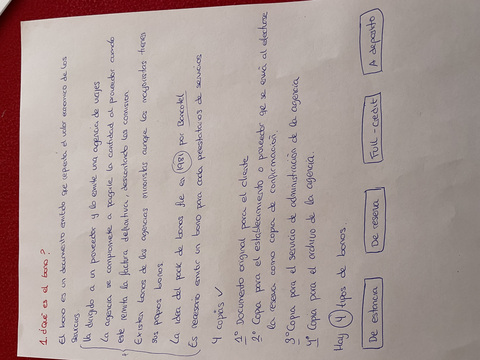 1. ¿Qué es el bono?
El bono es un documento emitido que representa el valor económico de los
servicios
Va dirigido a un proveedor y lo emite una agencia de viajes
La agencia se compromete a pagarle la cantidad al proveedor cuando
este remita la factura definitiva, descontando la comisión
Existen bonos de las agencias minoristas aunque los mayoristas tienen
sus propios bonos.
La idea del pack de bonos fue en 1981 por Bancotel
Es necesario emitir un bono para cada prestatario de servicios
4 copias ✓
1º Documento original para el cliente
2º Copia para el establecimiento o proveedor que se envía al efectuarse
la reserva como copia de confirmación.
3º Copia para el servicio de administración de la agencia
4º Copia para el archivo de la agencia.
Hay 4 tipos de bonos.
De estancia De reserva Full-credit A deposito